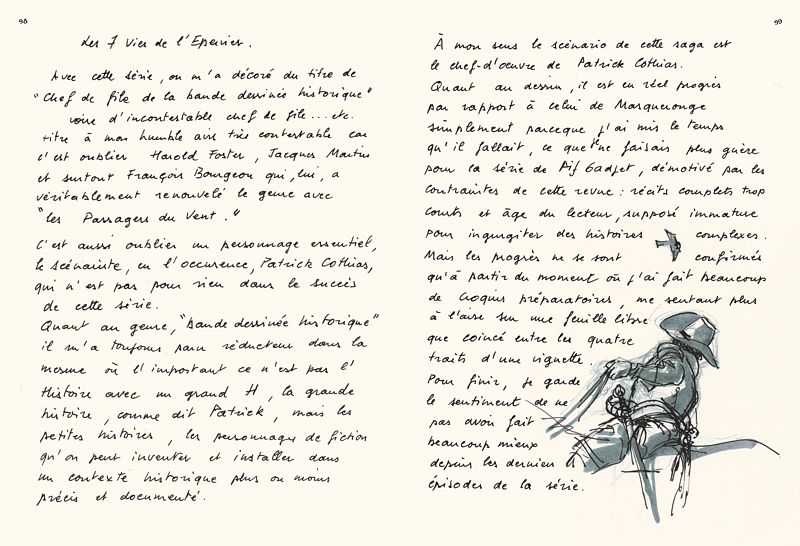 98
Les 7 Vies de l'Epervier.
Avec cette série, on m'a décoré du titre de
"Chef de file de la bande dessinée historique"
voire d'incontestable chef de file... etc.
titre à mon humble avis très contestable car
c'est oublier Harold Foster, Jacques Martin
et surtout François Bourgeon qui, lui, a
véritablement renouvelé le genre avec
"les Passagers du Vent."
C'est aussi oublier un personnage essentiel,
le scénariste, en l'occurence, Patrick Cothias,
qui n'est pas pour rien dans le succès
de cette série.
Quant au genre, "bande dessinée historique"
il m'a toujours paru réducteur dans la
mesure où l'important ce n'est pas l'
Histoire avec un grand H, la grande
histoire, comme dit Patrick, mais les
petites histoires, les personnages de fiction
qu'on peut inventer et installer dans
un contexte historique plus ou moins
précis et documenté.
99
À mon sens le scénario de cette saga est
le chef-d'oeuvre de Patrick Cothias.
Quant au dessin, il est en réel progrès
par rapport à celui de Masquerouge
simplement parceque j'ai mis le temps
qu'il fallait, ce que je ne faisais plus guère
pour la série de Pif Gadget, démotivé par les
contraintes de cette revue : récits complets trop
courts et âge du lecteur, supposé immature
pour ingurgiter des histoires complexes.
Mais les progrès ne se sont confirmés
qu'à partir du moment où j'ai fait beaucoup
de croquis préparatoires, me sentant plus
à l'aise sur une feuille libre
que coincé entre les quatre
traits d'une vignette.
Pour finir, je garde
le sentiment de ne
pas avoir fait
beaucoup mieux
depuis les derniers
épisodes de la série.